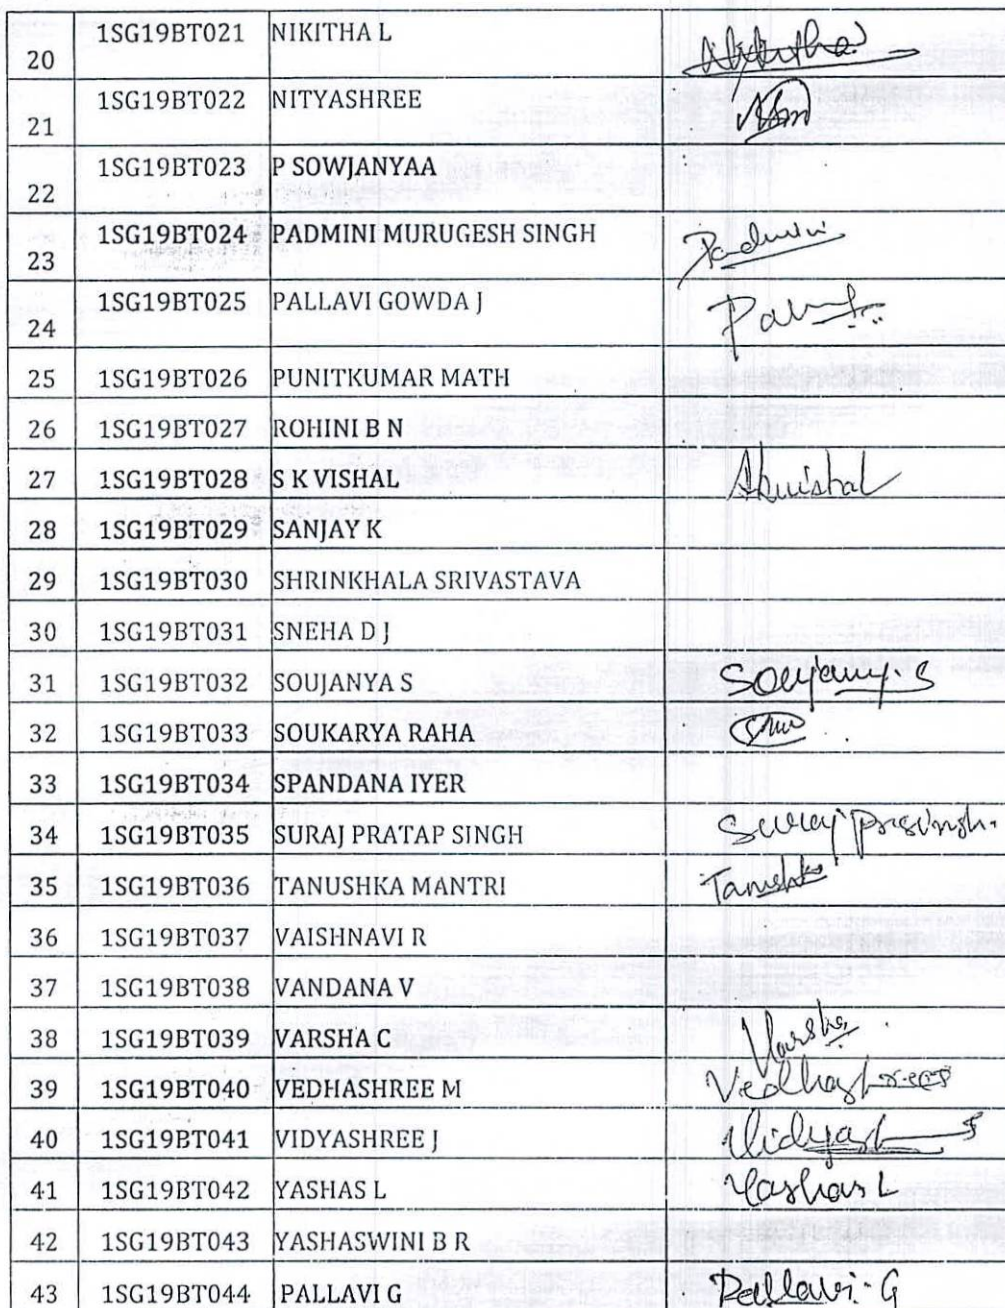 20 1SG19BT021 NIKITHA L Nikitha
21 1SG19BT022 NITYASHREE
22 1SG19BT023 P SOWJANYAA
23 1SG19BT024 PADMINI MURUGESH SINGH Padmini
24 1SG19BT025 PALLAVI GOWDA J
25 1SG19BT026 PUNITKUMAR MATH
26 1SG19BT027 ROHINI B N
27 1SG19BT028 S K VISHAL Skvishal
28 1SG19BT029 SANJAY K
29 1SG19BT030 SHRINKHALA SRIVASTAVA
30 1SG19BT031 SNEHA D J
31 1SG19BT032 SOUJANYA S Soujanya S
32 1SG19BT033 SOUKARYA RAHA
33 1SG19BT034 SPANDANA IYER
34 1SG19BT035 SURAJ PRATAP SINGH Suraj
35 1SG19BT036 TANUSHKA MANTRI Tanushka
36 1SG19BT037 VAISHNAVI R
37 1SG19BT038 VANDANA V
38 1SG19BT039 VARSHA C Varsha
39 1SG19BT040 VEDHASHREE M Vedhashree
40 1SG19BT041 VIDYASHREE J
41 1SG19BT042 YASHAS L Yashas L
42 1SG19BT043 YASHASWINI B R
43 1SG19BT044 PALLAVI G Pallavi-G